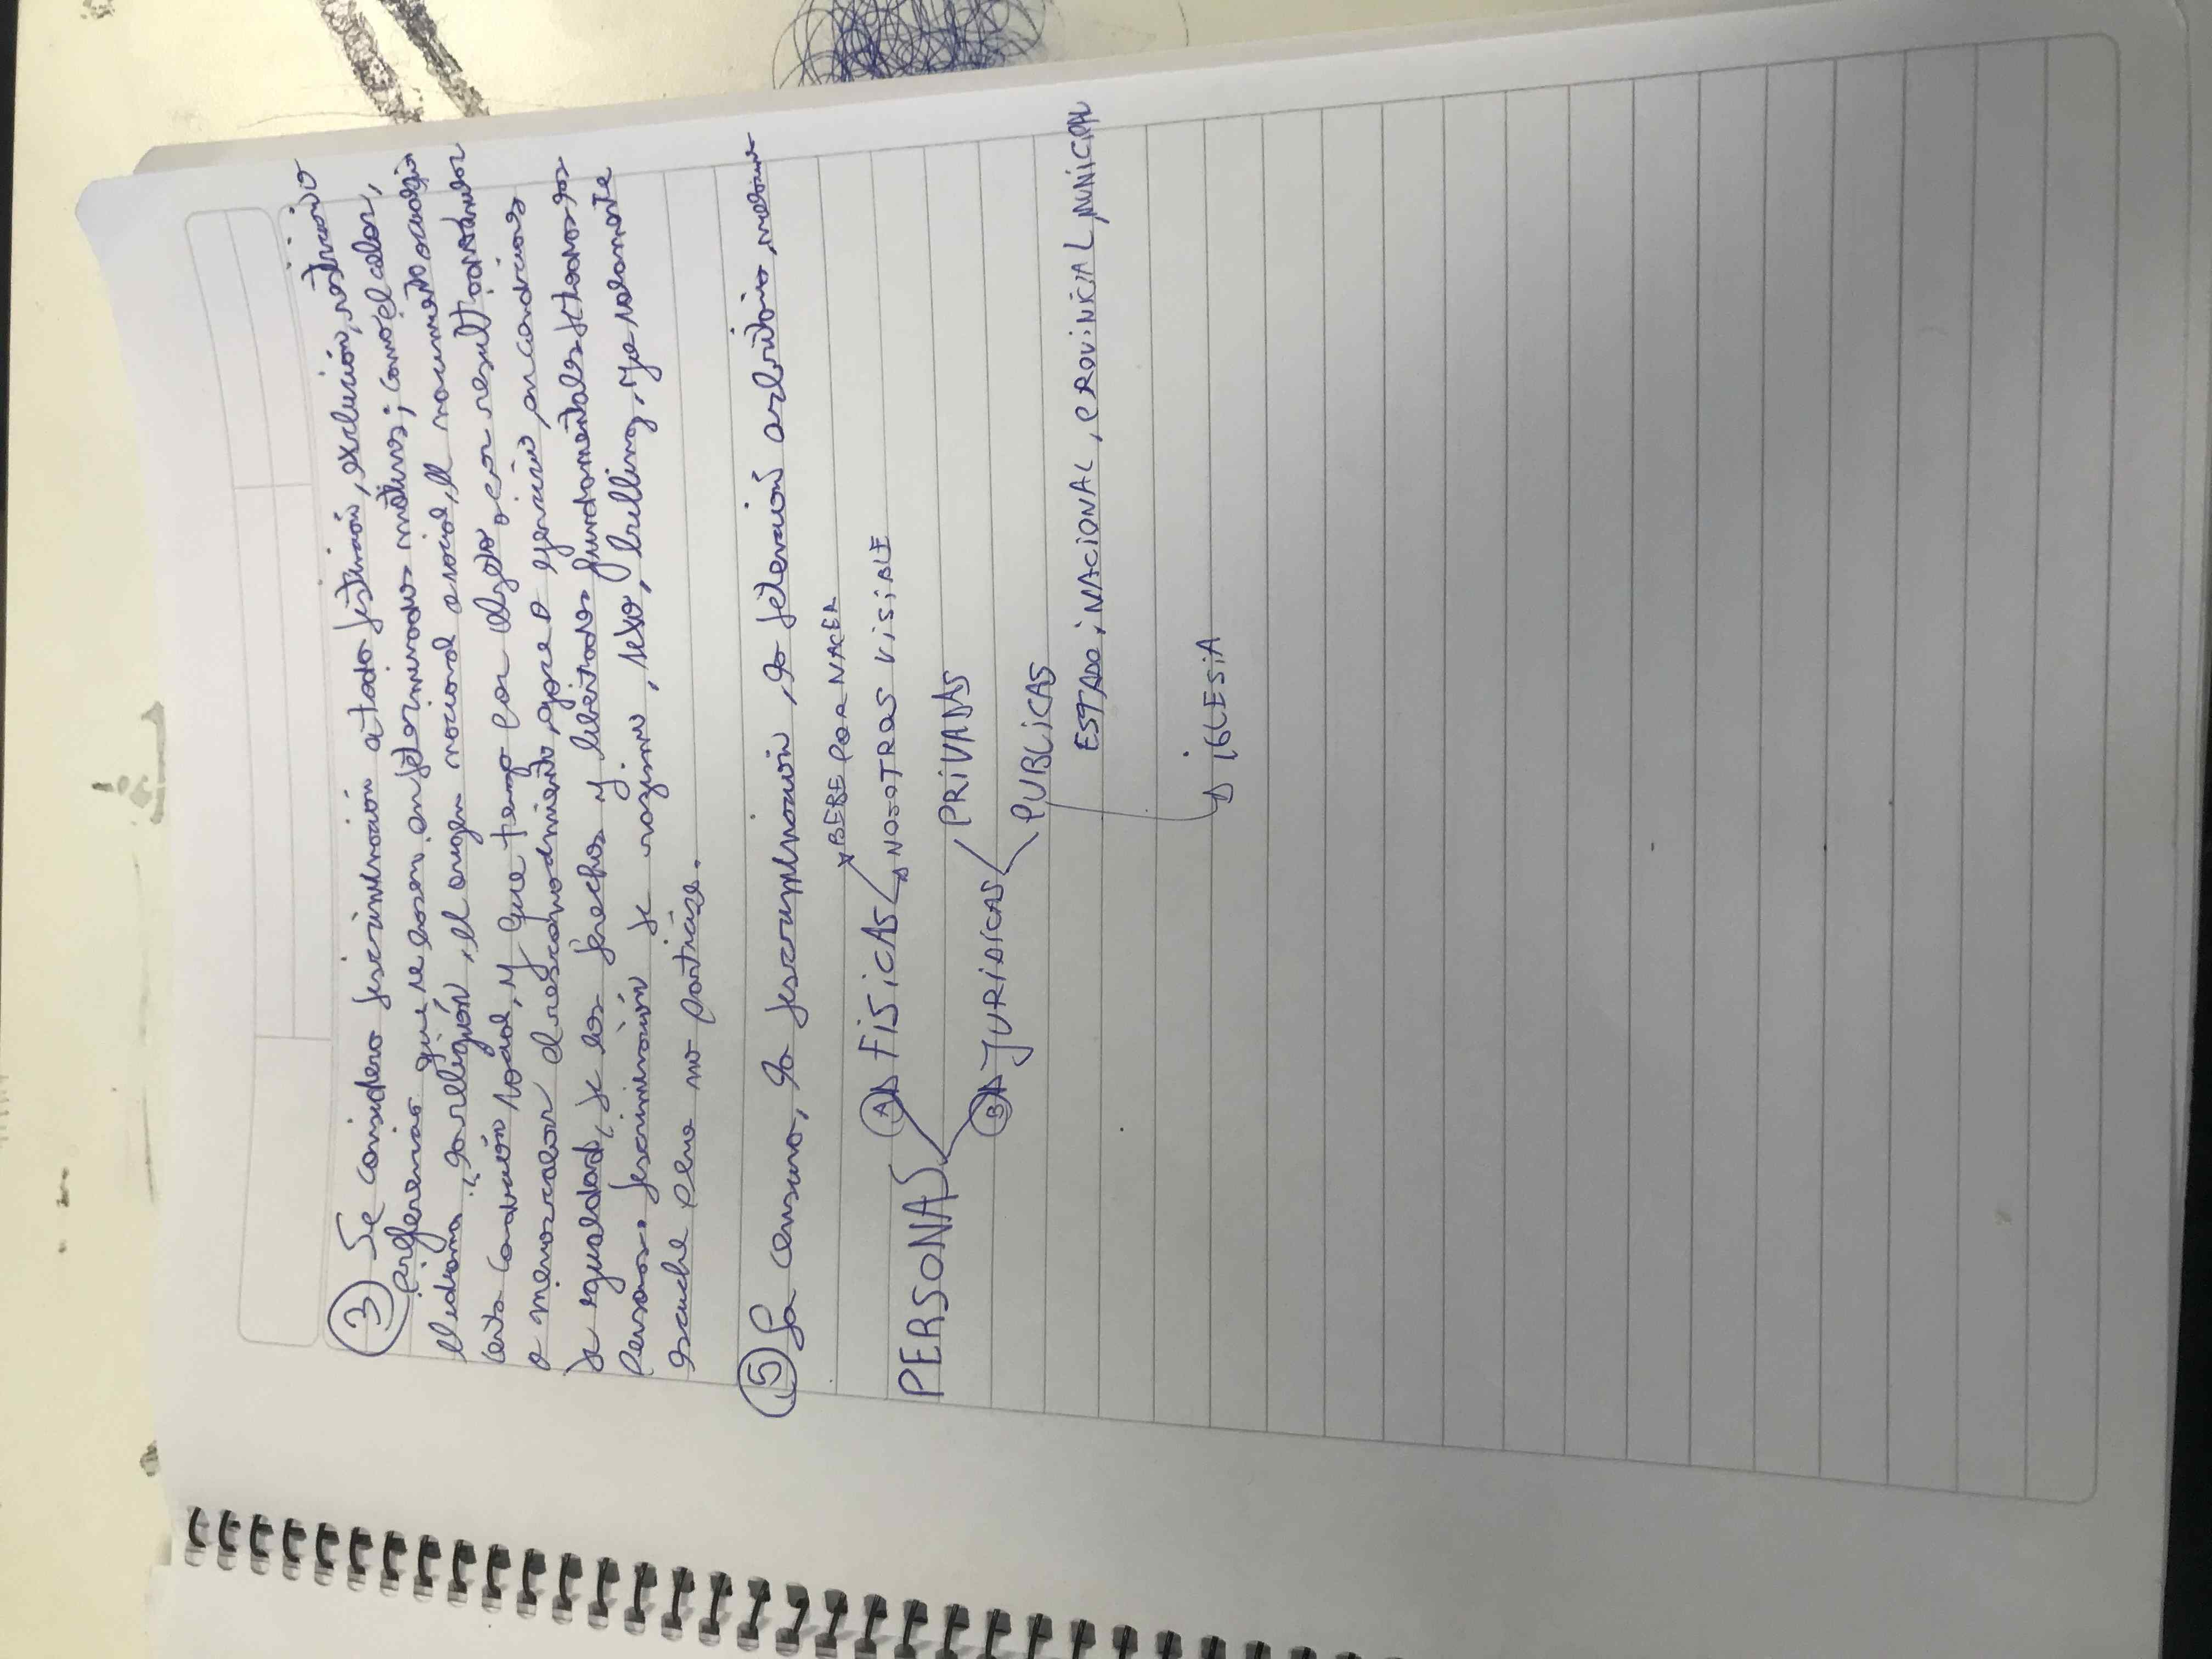 ③ Se considera discriminación a toda distinción, exclusión, restricción
preferencias que se basen en determinados motivos; como el color,
el idioma, la religión, el origen nacional o social, el nacimiento
condición social, y que tenga por objeto por resultado anular
o menoscabar el reconocimiento, goce o ejercicio, en condiciones
de igualdad, de los derechos y libertades fundamentales de todas las
personas. Discriminación de racismo, sexo, bullying. Yo solamente
escuche pero no participe.
⑤ La censura, la discriminación, la detención arbitraria,
BEBE POR NACER
PERSONAS Ⓐ FISICAS NOSOTROS VISIBLE
Ⓑ JURIDICAS PRIVADAS
PUBLICAS
ESTADO; NACIONAL, PROVINCIAL, MUNICIPAL
IGLESIA